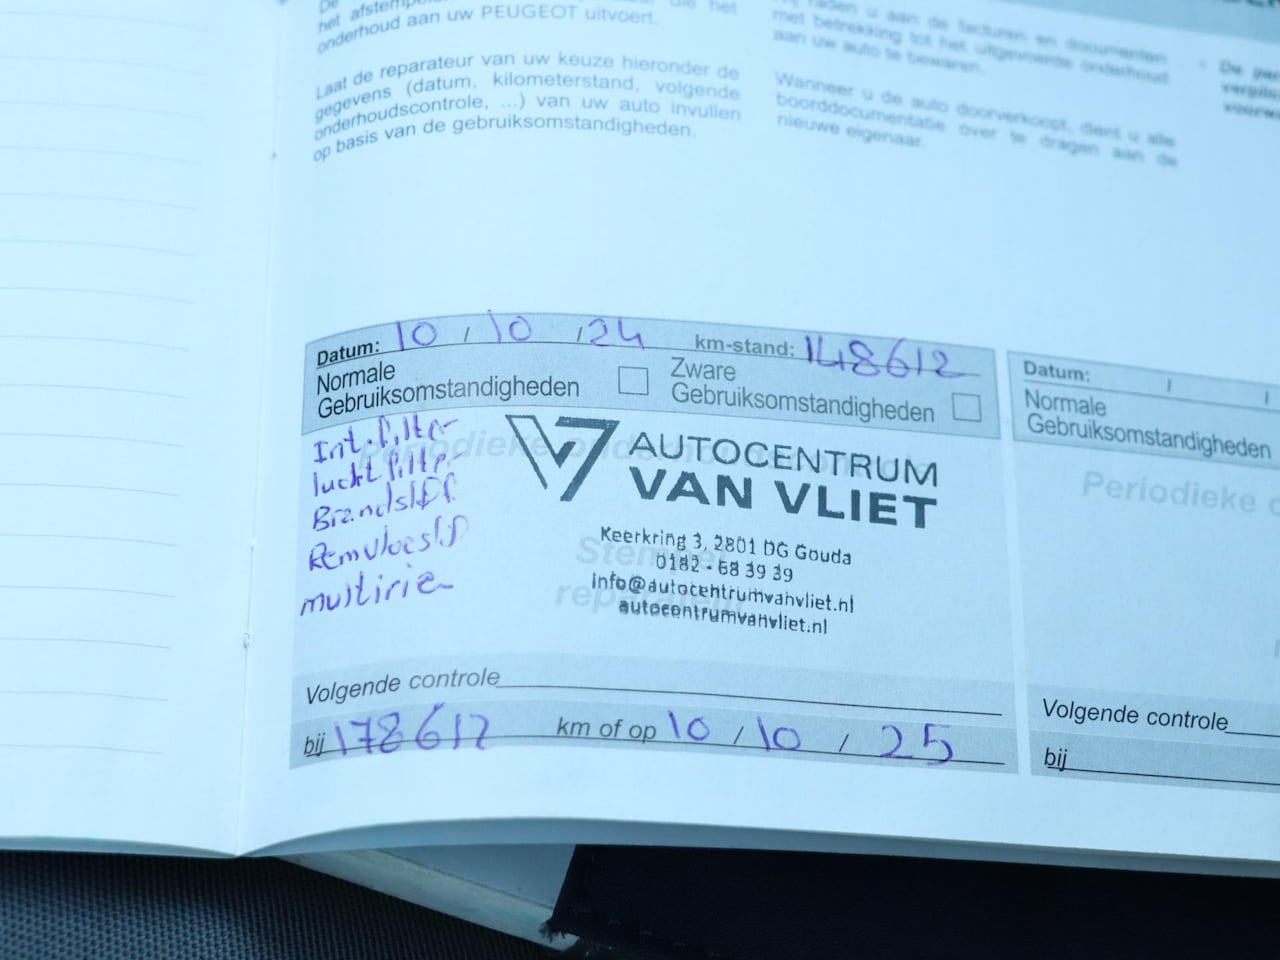 het
onderhoud aan uw PEUGEOT uitvoert.
Laat de reparateur van uw keuze hieronder de
gegevens (datum, kilometerstand, volgende
onderhoudscontrole, ...) van uw auto invullen
op basis van de gebruiksomstandigheden.
Wij raden u aan de facturen en documenten
met betrekking tot het uitgevoerde onderhoud
aan uw auto te bewaren.
Wanneer u de auto doorverkoopt, dient u alle
boorddocumentatie over te dragen aan de
nieuwe eigenaar.
De
Datum: 10 / 10 / 24 km-stand: 148612
Normale
Gebruiksomstandigheden
Zware
Gebruiksomstandigheden
Int. filter
lucht filter
Brandst.
Remvloeist
multirie
Periodieke
AUTOCENTRUM
VAN VLIET
Keerkring 3, 2801 DG Gouda
0182 - 68 39 39
info@autocentrumvanvliet.nl
autocentrumvanvliet.nl
Volgende controle
bij 178612 km of op 10 / 10 / 25
Datum: / /
Normale
Gebruiksomstandigheden
Periodieke
Volgende controle
bij